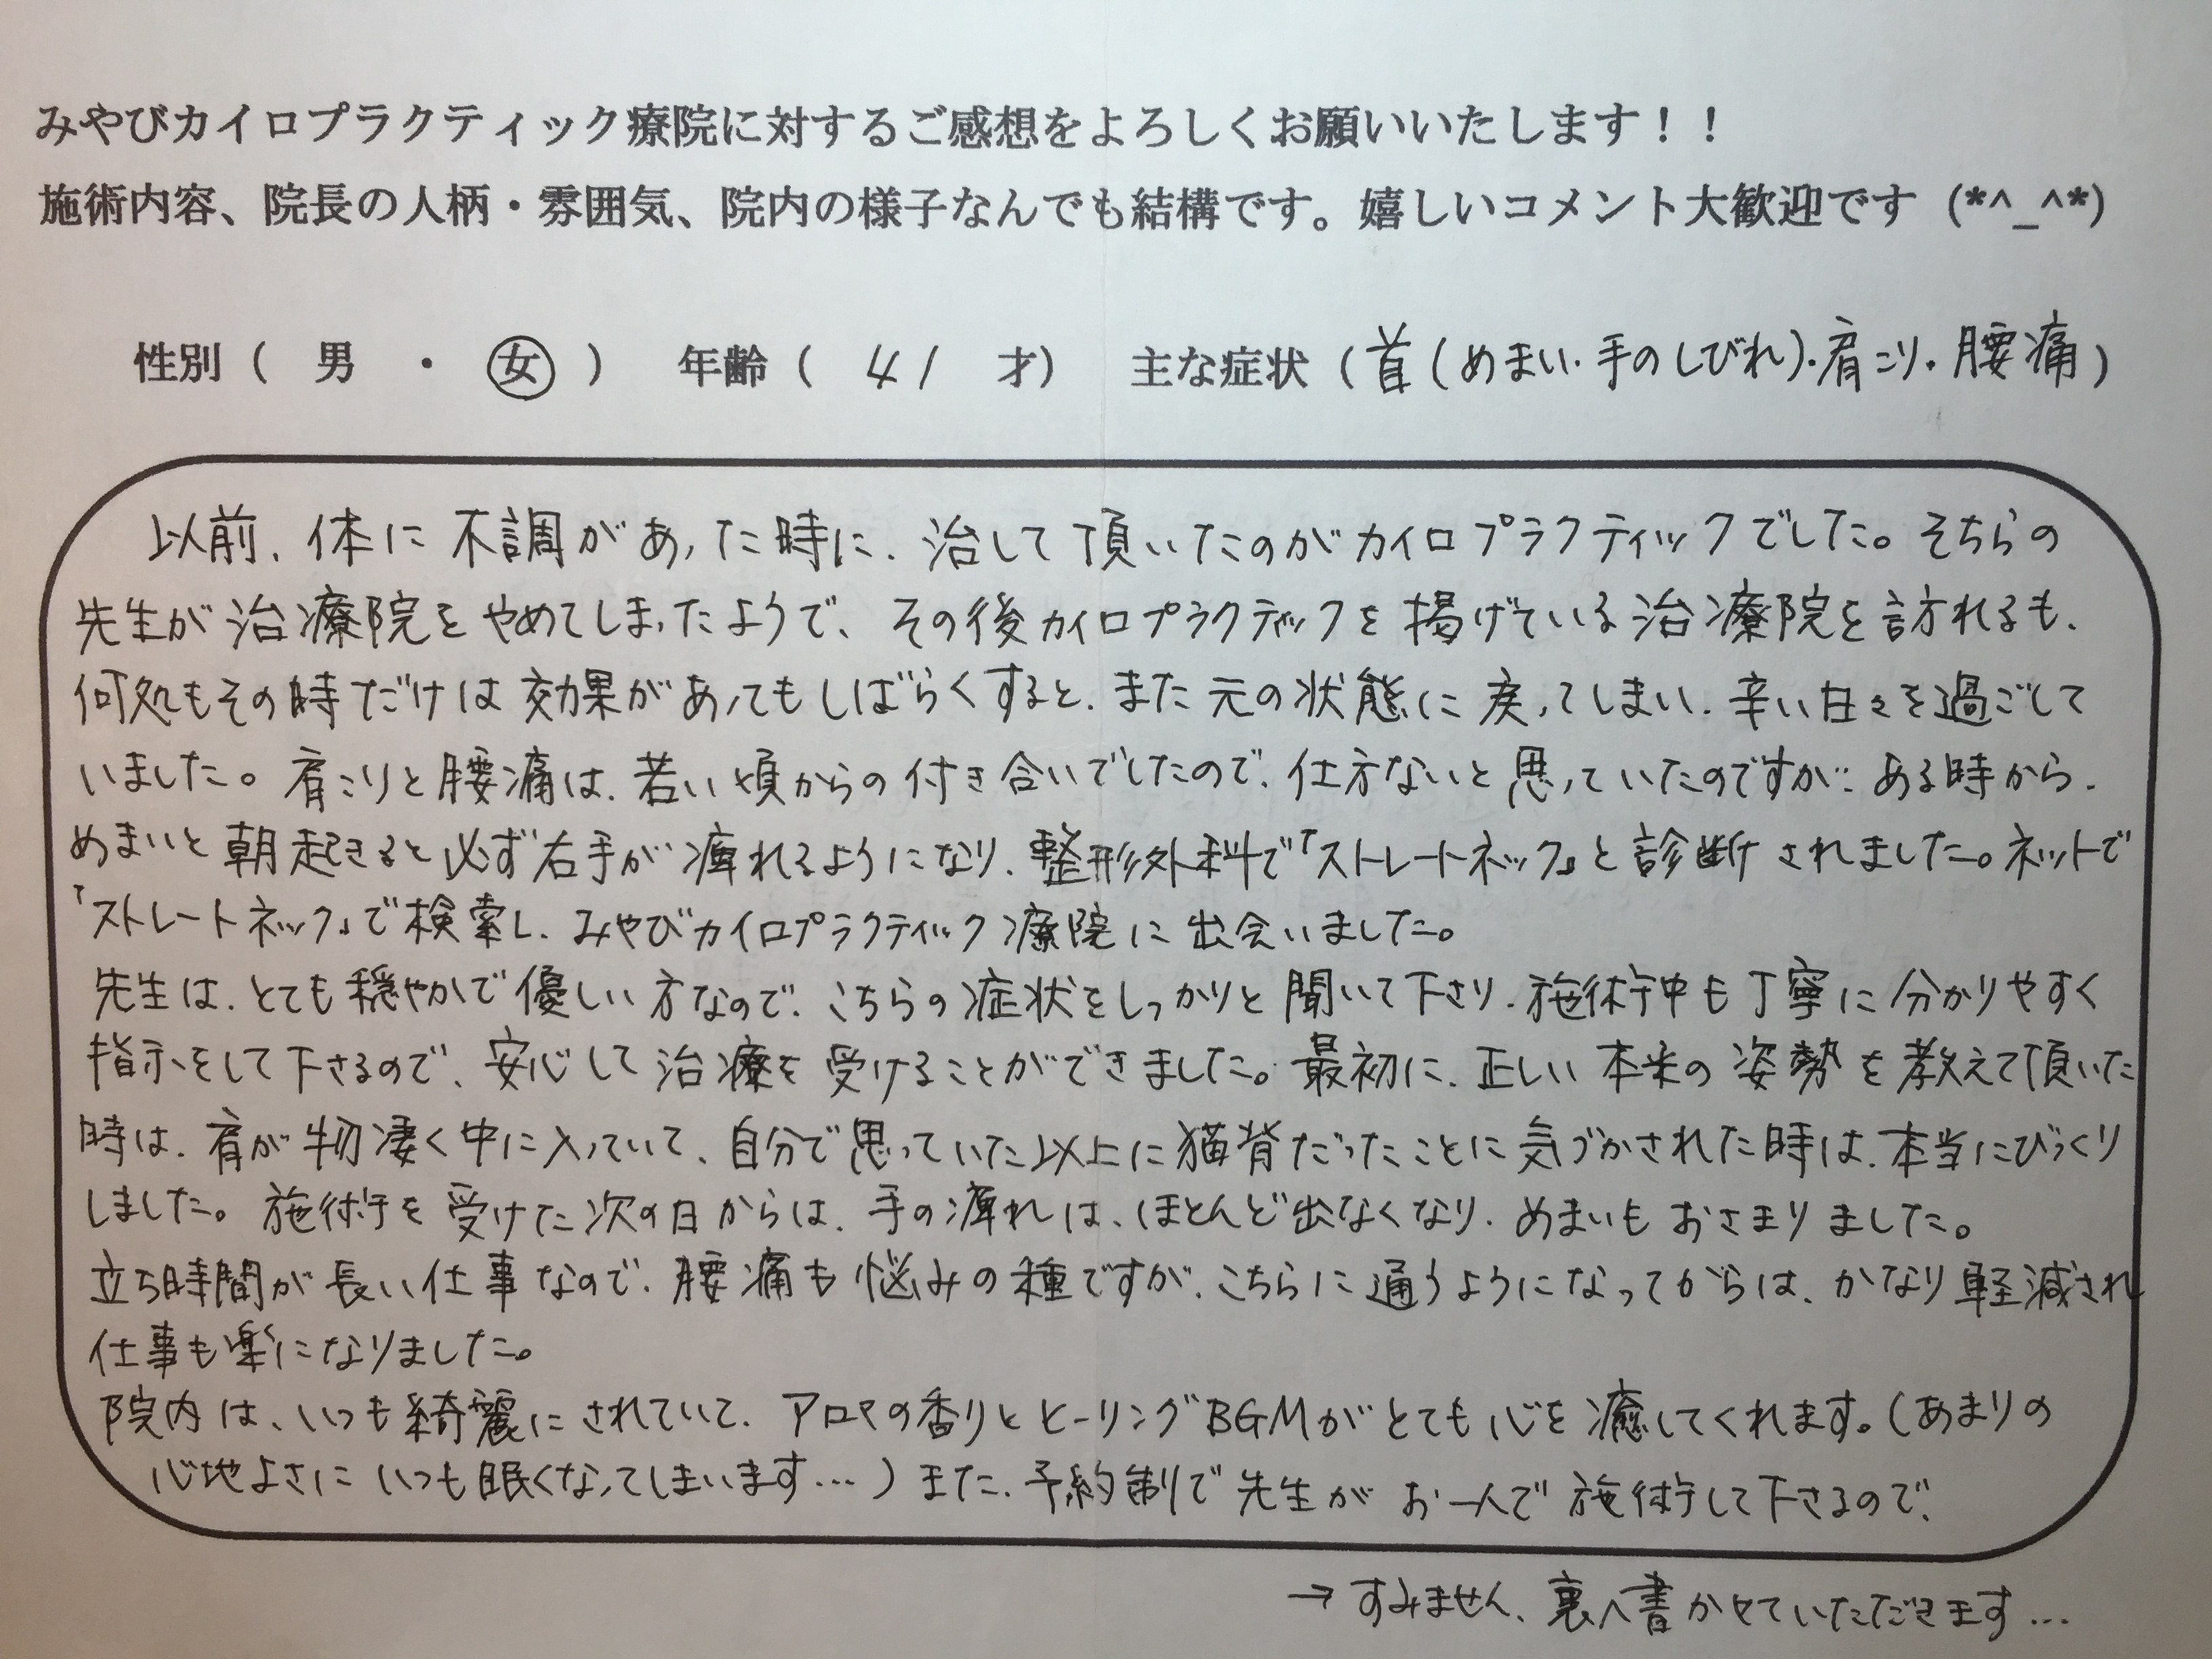 みやびカイロプラクティック療院に対するご感想をよろしくお願いいたします！！
施術内容、院長の人柄・雰囲気、院内の様子なんでも結構です。嬉しいコメント大歓迎です（*^_^*）
性別（ 男 ・ 女 ） 年齢（ 41 才） 主な症状（首（めまい・手のしびれ）・肩こり・腰痛）
以前、体に不調があった時に、治して頂いたのがカイロプラクティックでした。そちらの
先生が治療院をやめてしまったようで、その後カイロプラクティックを掲げている治療院を訪れるも、
何処もその時だけは効果があってもしばらくすると、また元の状態に戻ってしまい、辛い日々を過ごして
いました。肩こりと腰痛は、若い頃からの付き合いでしたので、仕方ないと思っていたのですが… ある時から、
めまいと朝起きると必ず右手が痺れるようになり、整形外科で「ストレートネック」と診断されました。ネットで
「ストレートネック」で検索し、みやびカイロプラクティック療院に出会いました。
先生は、とても穏やかで優しい方なので、こちらの症状をしっかりと聞いて下さり、施術中も丁寧に分かりやすく
指示をして下さるので、安心して治療を受けることができました。最初に、正しい本来の姿勢を教えて頂いた
時は、肩が物凄く中に入っていて、自分で思っていた以上に猫背だったことに気づかされた時は、本当にびっくり
しました。施術を受けた次の日からは、手の痺れは、ほとんど出なくなり、めまいもおさまりました。
立ち時間が長い仕事なので、腰痛も悩みの種ですが、こちらに通うようになってからは、かなり軽減され
仕事も楽になりました。
院内は、いつも綺麗にされていて、アロマの香りとヒーリングBGMがとても心を癒してくれます。（あまりの
心地よさにいつも眠くなってしまいます…）また、予約制で先生がお一人で施術して下さるので、
→すみません、裏へ書かせていただきます…